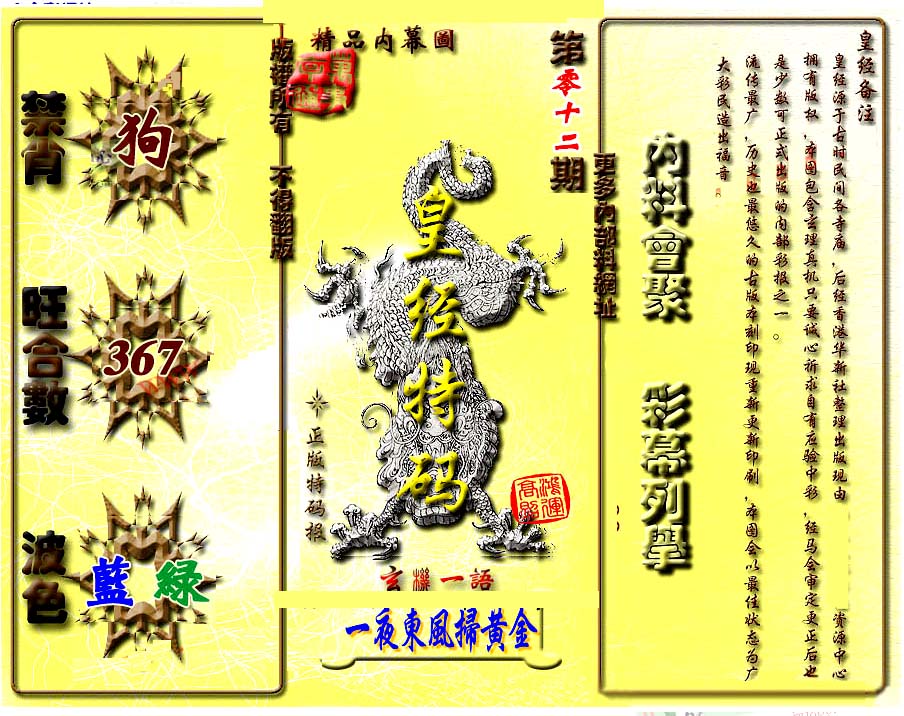 精品内幕圖
版權所有 不得翻版
第零十二期
更多內部料網址
禁肖
狗
旺合數
367
波色
藍 綠
皇经特码
正版特码报
鴻運高照
玄機一語
一夜東風掃黃金
內料會聚 彩幕列擧
皇经备注
皇经源于古时民间各寺庙，后经香港华新社整理出版现由 资源中心
拥有版权，本图包含玄理真机只要诚心祈求自有应验中彩，经马会审定更正后也
是少数可正式出版的内部彩报之一。
流传最广，历史也最悠久的古版本刻印现重新更新印刷，本图会以最佳状态为广
大彩民造出福音